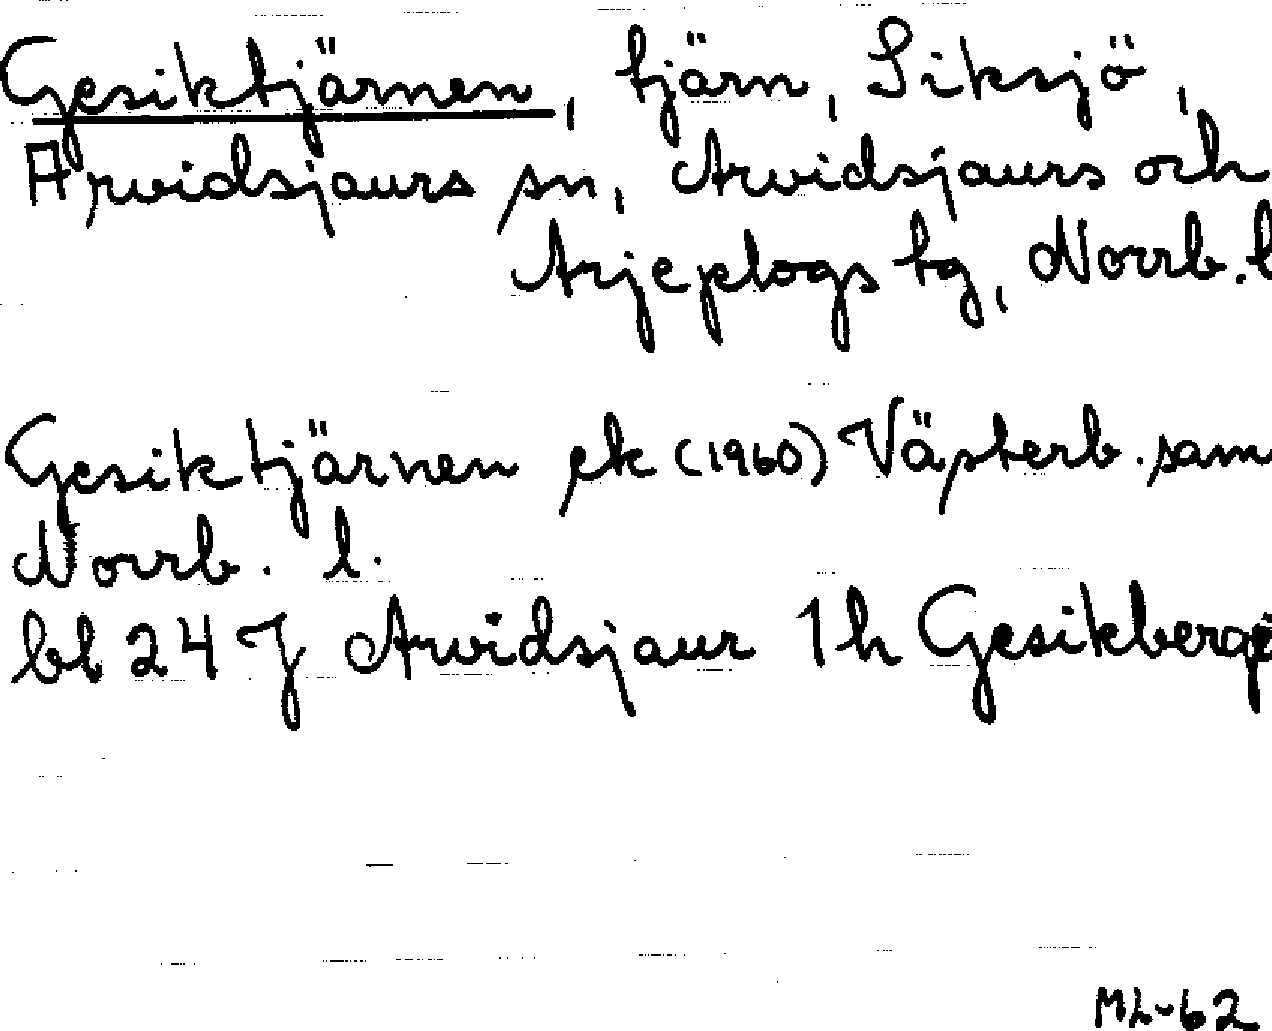 Gesiktjärnen, tjärn, Siksjö,
Arvidsjaurs sn, Arvidsjaurs och
Arjeplogs tg, Norrb. l
Gesiktjärnen ek (1960) Västerb. sam
Norrb. l.
bl 24 J Arvidsjaur 1h Gesikberge
ML-62